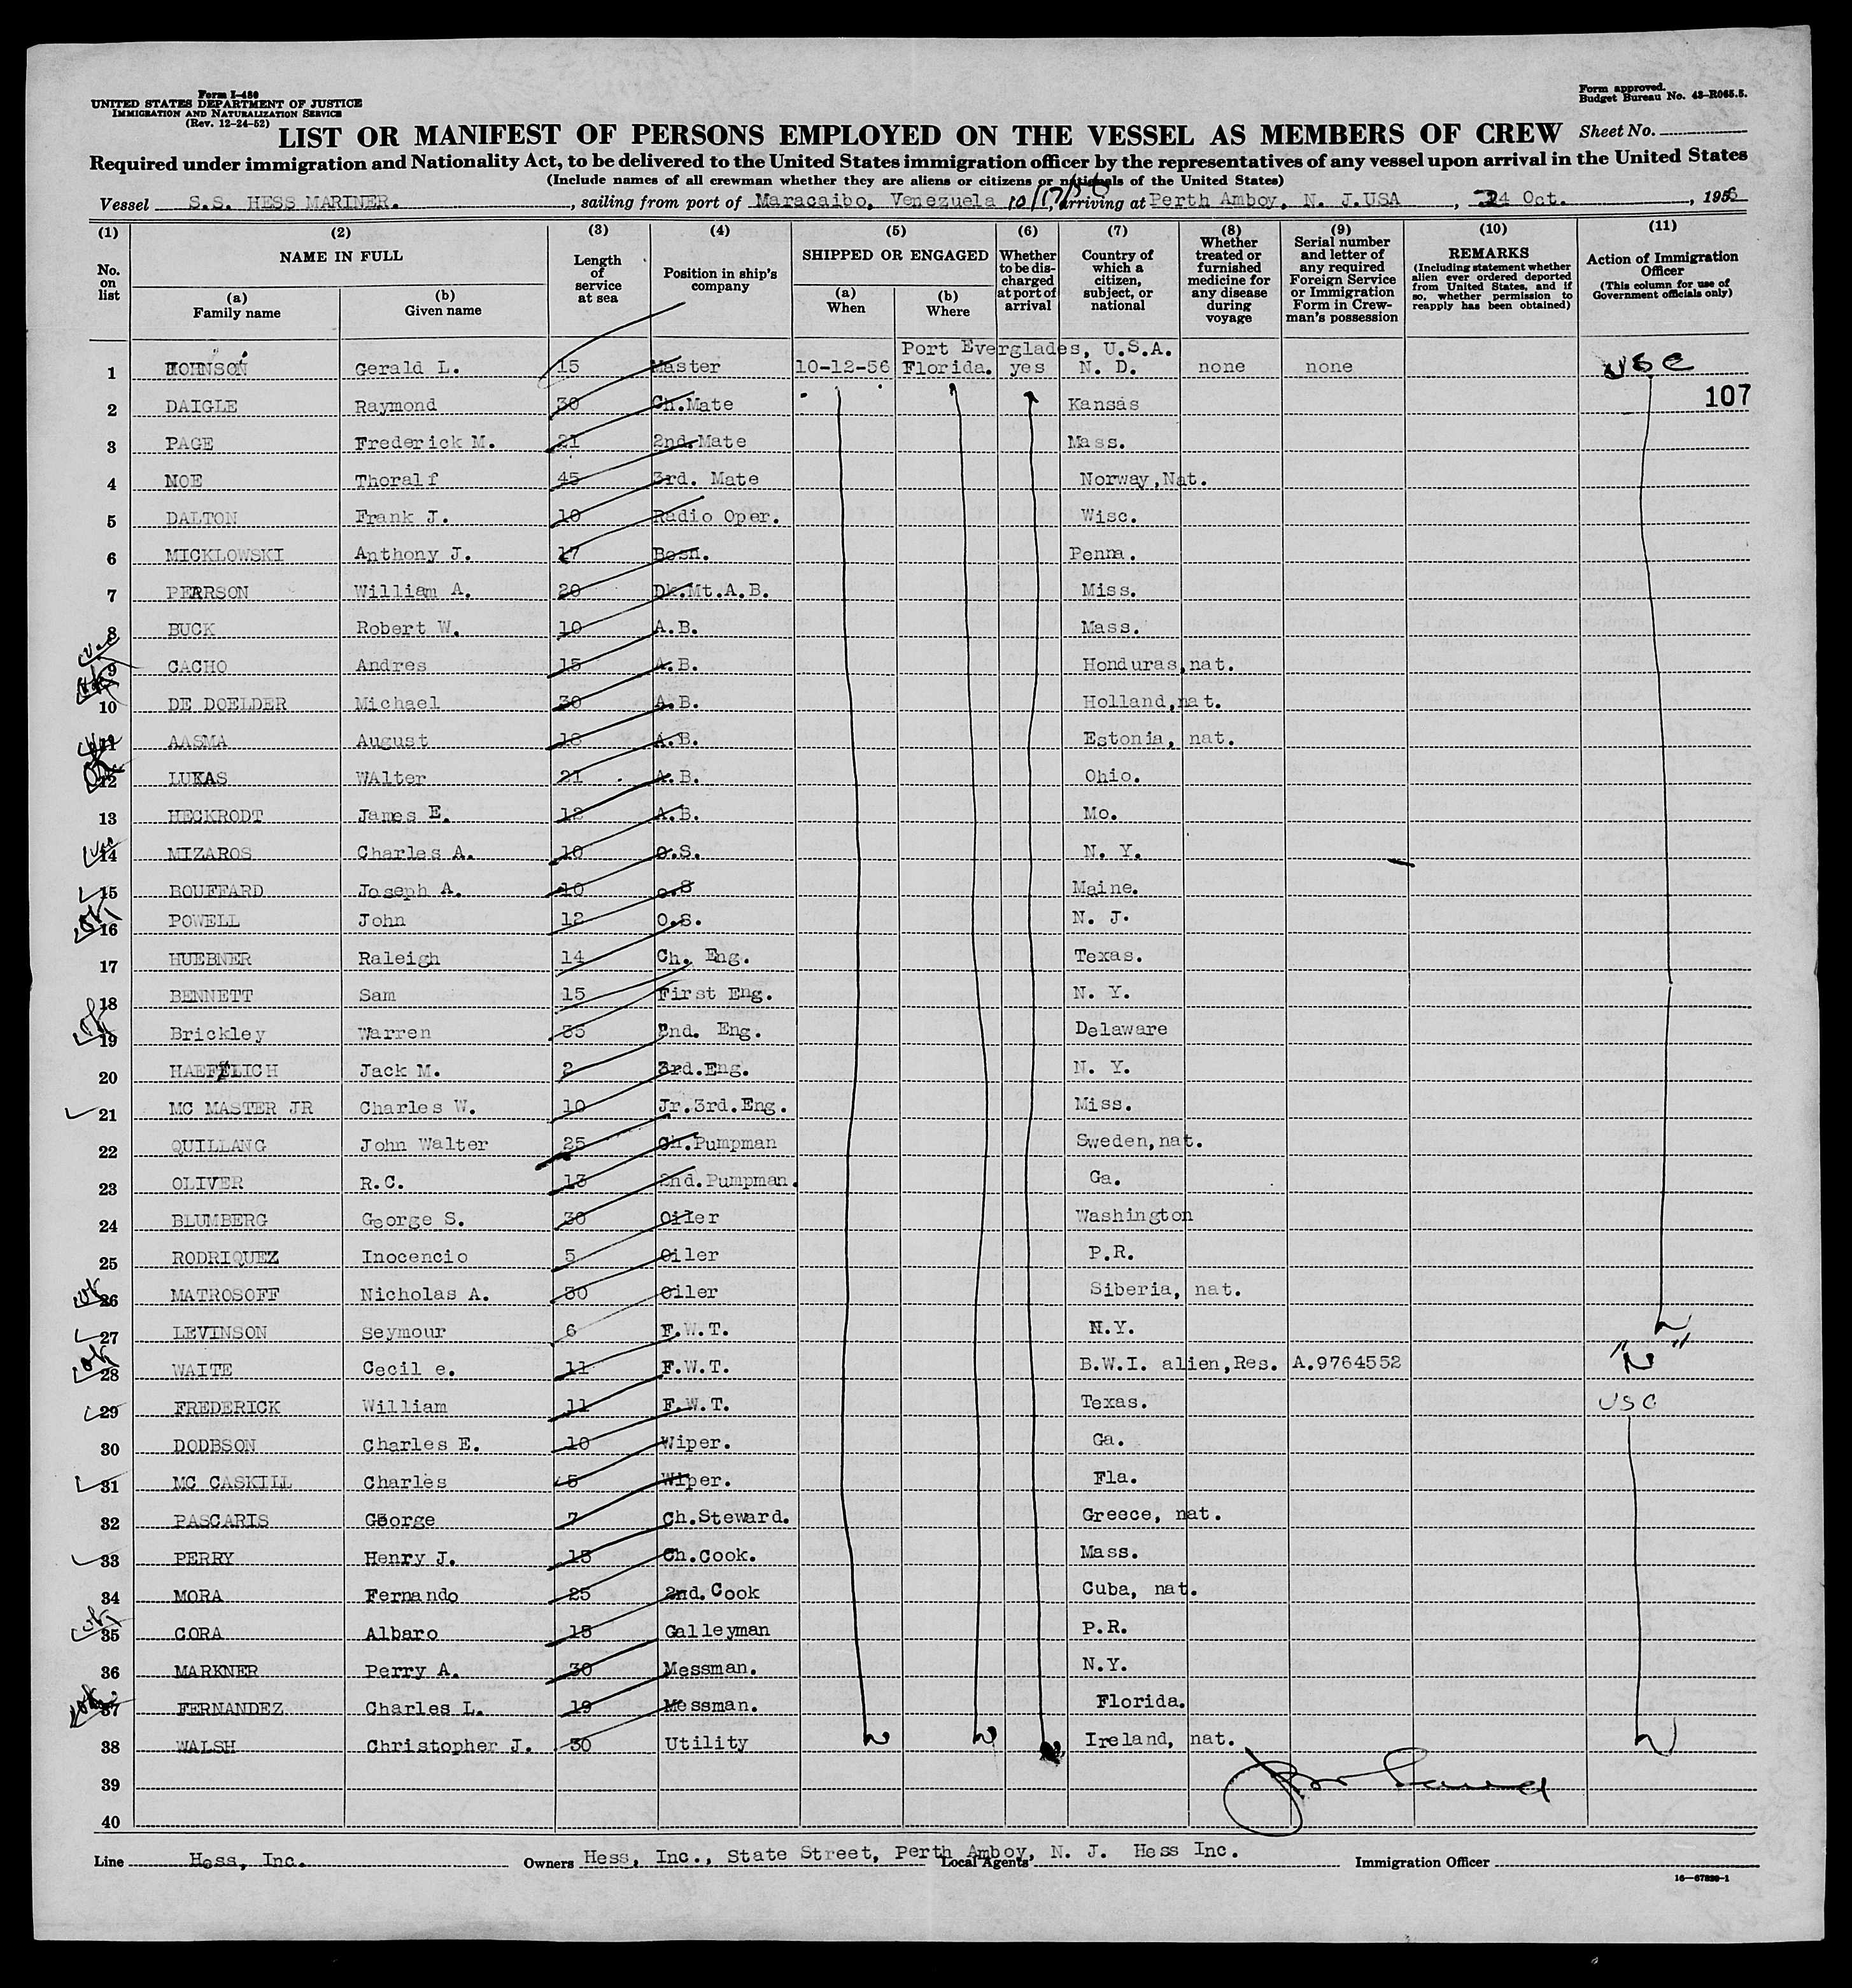 Form I-480
UNITED STATES DEPARTMENT OF JUSTICE
IMMIGRATION AND NATURALIZATION SERVICE
(Rev. 12-24-52)
Form approved.
Budget Bureau No. 43-R065.5.
LIST OR MANIFEST OF PERSONS EMPLOYED ON THE VESSEL AS MEMBERS OF CREW Sheet No.
Required under immigration and Nationality Act, to be delivered to the United States immigration officer by the representatives of any vessel upon arrival in the United States
(Include names of all crewman whether they are aliens or citizens or nationals of the United States)
Vessel S.S. HESS MARINER. , sailing from port of Maracaibo, Venezuela 10/17/56, arriving at Perth Amboy, N. J.USA , 24 Oct. , 1956
(1) (2) (3) (4) (5) (6) (7) (8) (9) (10) (11)
No. on list
NAME IN FULL
(a) Family name
(b) Given name
Length of service at sea
Position in ship's company
SHIPPED OR ENGAGED
(a) When
(b) Where
Whether to be discharged at port of arrival
Country of which a citizen, subject, or national
Whether treated or furnished medicine for any disease during voyage
Serial number and letter of any required Foreign Service or Immigration Form in Crewman's possession
REMARKS
(Including statement whether alien ever ordered deported from United States, and if so, whether permission to reapply has been obtained)
Action of Immigration Officer
(This column for use of Government officials only)
Port Everglades, U.S.A.
1 JOHNSON Gerald L. 15 Master 10-12-56 Florida. yes N. D. none none USC
107
2 DAIGLE Raymond 30 Ch.Mate Kansas
3 PAGE Frederick M. 21 2nd.Mate Mass.
4 NOE Thoralf 45 3rd. Mate Norway,Nat.
5 DALTON Frank J. 10 Radio Oper. Wisc.
6 MICKLOWSKI Anthony J. 17 Bosn. Penna.
7 PEARSON William A. 20 Dk.Mt.A.B. Miss.
8 BUCK Robert W. 10 A.B. Mass.
9 CACHO Andres 15 A.B. Honduras,nat.
10 DE DOELDER Michael 30 A.B. Holland,nat.
11 AASMA August 18 A.B. Estonia, nat.
12 LUKAS WAlter 21 A.B. Ohio.
13 HECKRODT James E. 12 A.B. Mo.
14 MIZAROS Charles A. 10 O.S. N. Y.
15 BOUFFARD Joseph A. 10 o.S Maine.
16 POWELL John 12 O.S. N. J.
17 HUEBNER Raleigh 14 Ch. Eng. Texas.
18 BENNETT Sam 15 First Eng. N. Y.
19 Brickley Warren 35 2nd. Eng. Delaware
20 HAEFELICH Jack M. 2 3rd.Eng. N. Y.
21 MC MASTER JR Charles W. 10 Jr.3rd.Eng. Miss.
22 QUILLANG John Walter 25 Ch.Pumpman Sweden,nat.
23 OLIVER R.C. 13 2nd.Pumpman. Ga.
24 BLUMBERG George S. 30 Oiler Washington
25 RODRIQUEZ Inocencio 5 Oiler P.R.
26 MATROSOFF Nicholas A. 30 Oiler Siberia, nat.
27 LEVINSON Seymour 6 F.W.T. N.Y.
28 WAITE Cecil e. 11 F.W.T. B.W.I. alien,Res. A.9764552 "N"
29 FREDERICK William 11 F.W.T. Texas. USC
30 DODBSON Charles E. 10 Wiper. Ga.
31 MC CASKILL Charles 5 Wiper. Fla.
32 PASCARIS George 7 Ch.Steward. Greece, nat.
33 PERRY Henry J. 15 Ch.Cook. Mass.
34 MORA Fernando 25 2nd.Cook Cuba, nat.
35 CORA Albaro 15 Galleyman P.R.
36 MARKNER Perry A. 30 Messman. N.Y.
37 FERNANDEZ Charles L. 19 Messman. Florida.
38 WALSH Christopher J. 30 Utility Ireland, nat.
39
40
Line Hess, Inc. Owners Hess, Inc., State Street, Perth Amboy, N. J. Local Agents Hess Inc. Immigration Officer